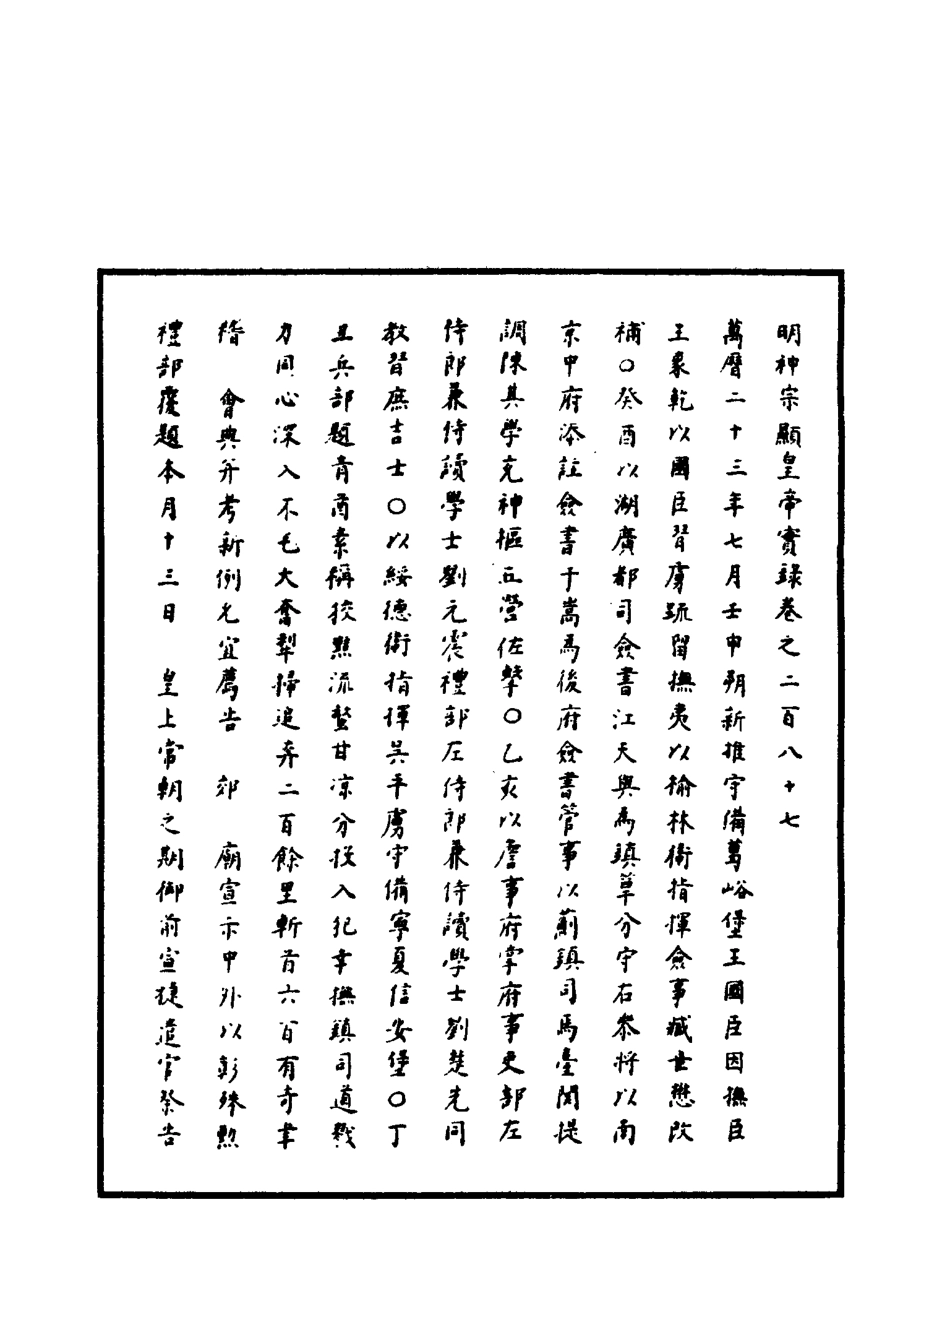 明神宗顯皇帝實錄卷之二百八十七
萬曆二十三年七月壬申朔新推守備葛峪堡王國臣因撫臣
王象乾以國臣習虜疏留撫夷以榆林衛指揮僉事臧世懋改
補○癸酉以湖廣都司僉書江天與為鎮草分守右參將以南
京中府添註僉書于嵩為後府僉書管事以薊鎮司馬臺閱提
調陳其學充神樞五營佐擊○乙亥以詹事府掌府事吏部左
侍郎兼侍讀學士劉元震禮部左侍郎兼侍讀學士劉楚先同
教習庶吉士○以綏德衛指揮吳平虜守備寧夏信安堡○丁
丑兵部題青酋素稱狡黠流螯甘涼分投入犯幸撫鎮司道戮
力同心深入不毛大奮犁掃追奔二百餘里斬首六百有奇聿
稽　會典并考新例允宜薦告　郊　廟宣示中外以彰殊勲
禮部覆題本月十三日　皇上常朝之期御前宣捷遣官祭告